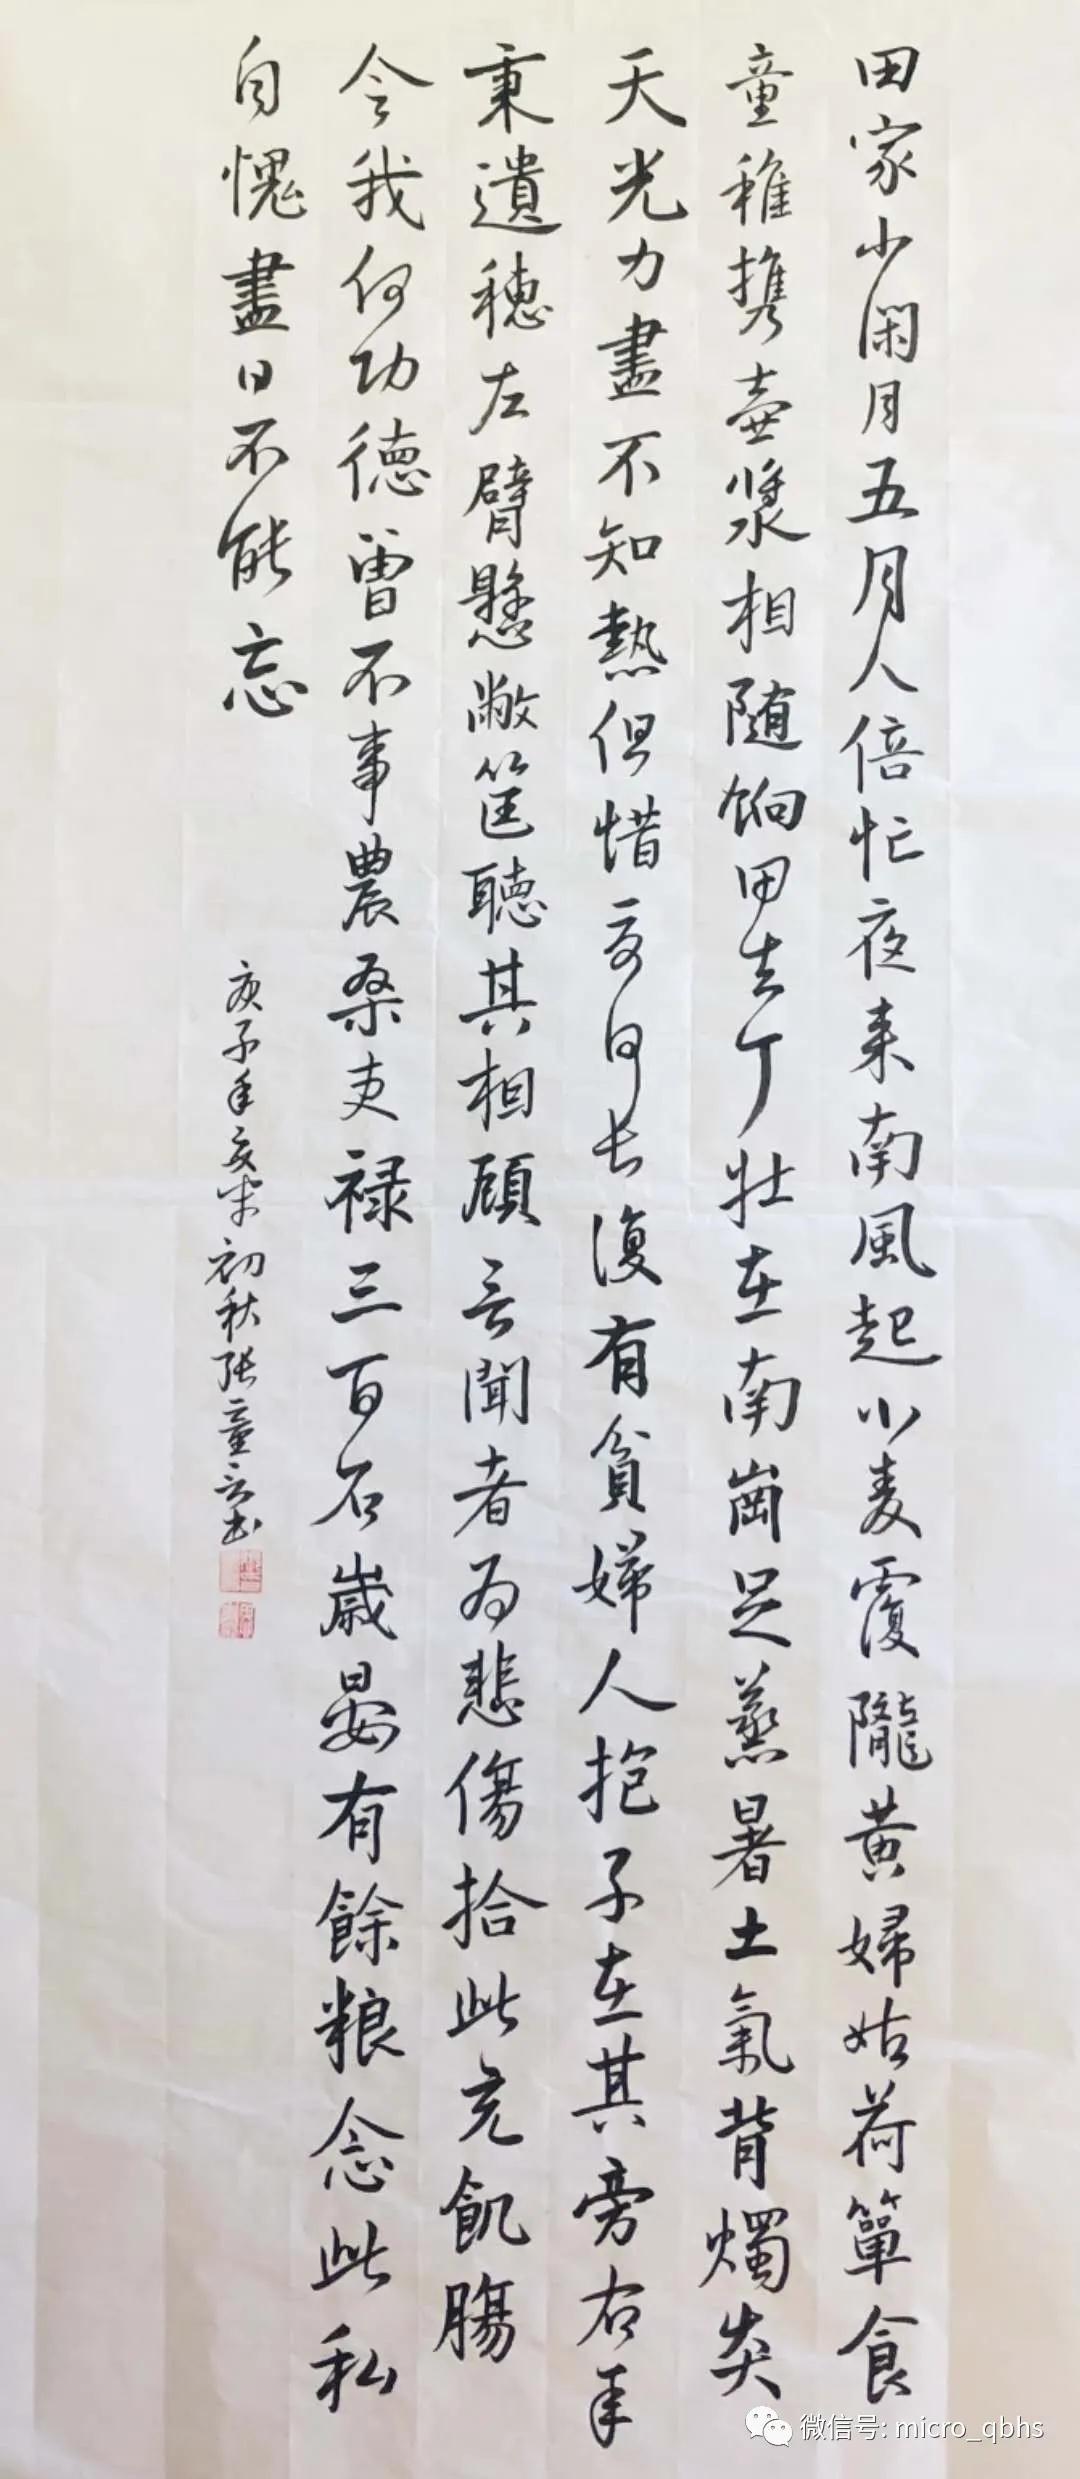 田家少閑月五月人倍忙夜来南風起小麦覆隴黄婦姑荷簞食
童稚携壺漿相随餉田去丁壮在南崗足蒸暑土氣背燭炎
天光力盡不知熱但惜夏日長復有貧婦人抱子在其旁右手
秉遺穗左臂懸敝筐聽其相顧言聞者為悲傷拾此充飢腸
今我何功德曾不事農桑吏禄三百石歲晏有餘粮念此私
自愧盡日不能忘
庚子年初秋張童云书
微信号: micro_qbhs